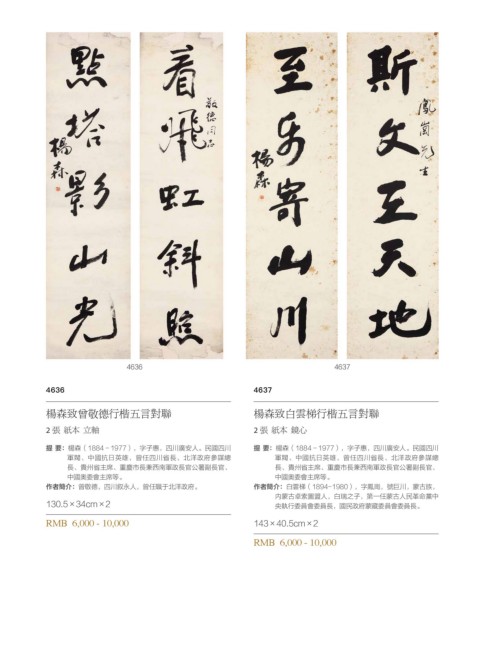 看飛虹斜照
敬德同志
點塔影山光
楊森
斯文在天地
鳳崗先生
至樂寄山川
楊森
4636
4637
4636
楊森致曾敬德行楷五言對聯
2 張 紙本 立軸
提 要：楊森（1884－1977），字子惠，四川廣安人。民國四川
軍閥，中國抗日英雄，曾任四川省長，北洋政府參謀總
長，貴州省主席，重慶市長兼西南軍政長官公署副長官，
中國奧委會主席等。
作者簡介：曾敬德，四川敘永人，曾任職于北洋政府。
130.5×34cm×2
RMB 6,000 - 10,000
4637
楊森致白雲梯行楷五言對聯
2 張 紙本 鏡心
提 要：楊森（1884－1977），字子惠，四川廣安人。民國四川
軍閥，中國抗日英雄，曾任四川省長，北洋政府參謀總
長，貴州省主席，重慶市長兼西南軍政長官公署副長官，
中國奧委會主席等。
作者簡介：白雲梯（1894~1980），字鳳崗，號巨川，蒙古族，
內蒙古卓索圖盟人，白瑞之子，第一任蒙古人民革命黨中
央執行委員會委員長，國民政府蒙藏委員會委員長。
143×40.5cm×2
RMB 6,000 - 10,000